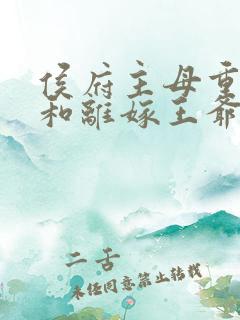 侯府主母重
和離嫁王爺
二舌
未经同意禁止转载